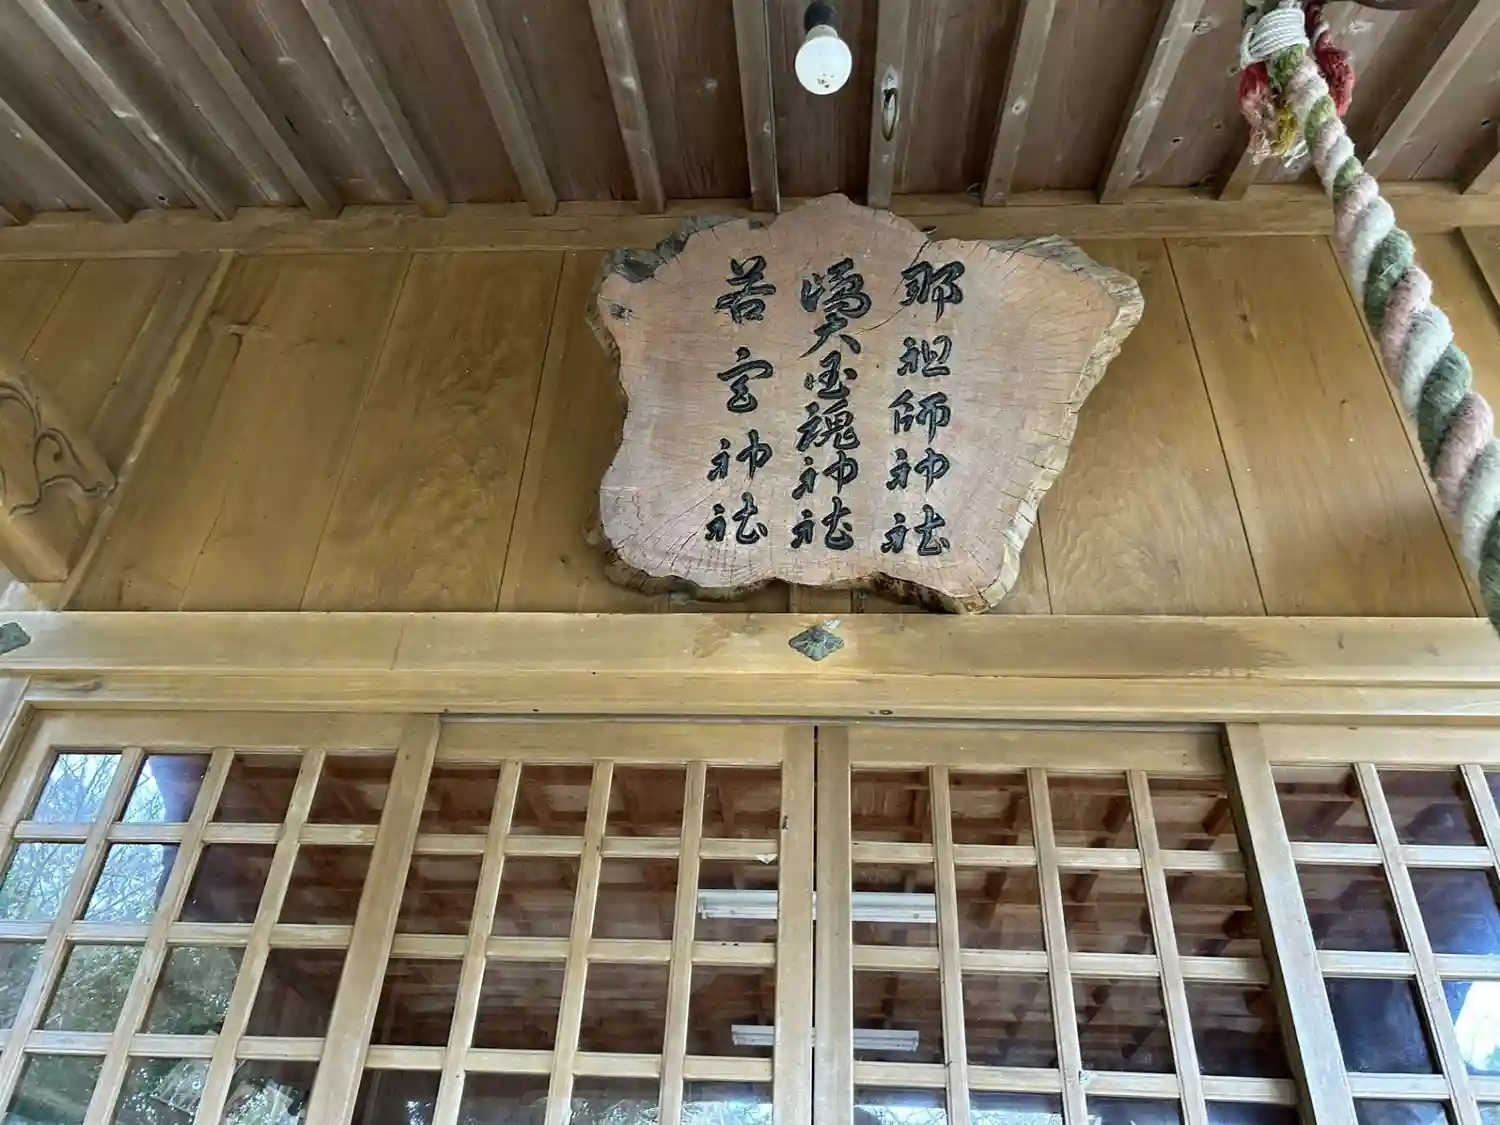 那祖師神社
嶋大国魂神社
若宮神社